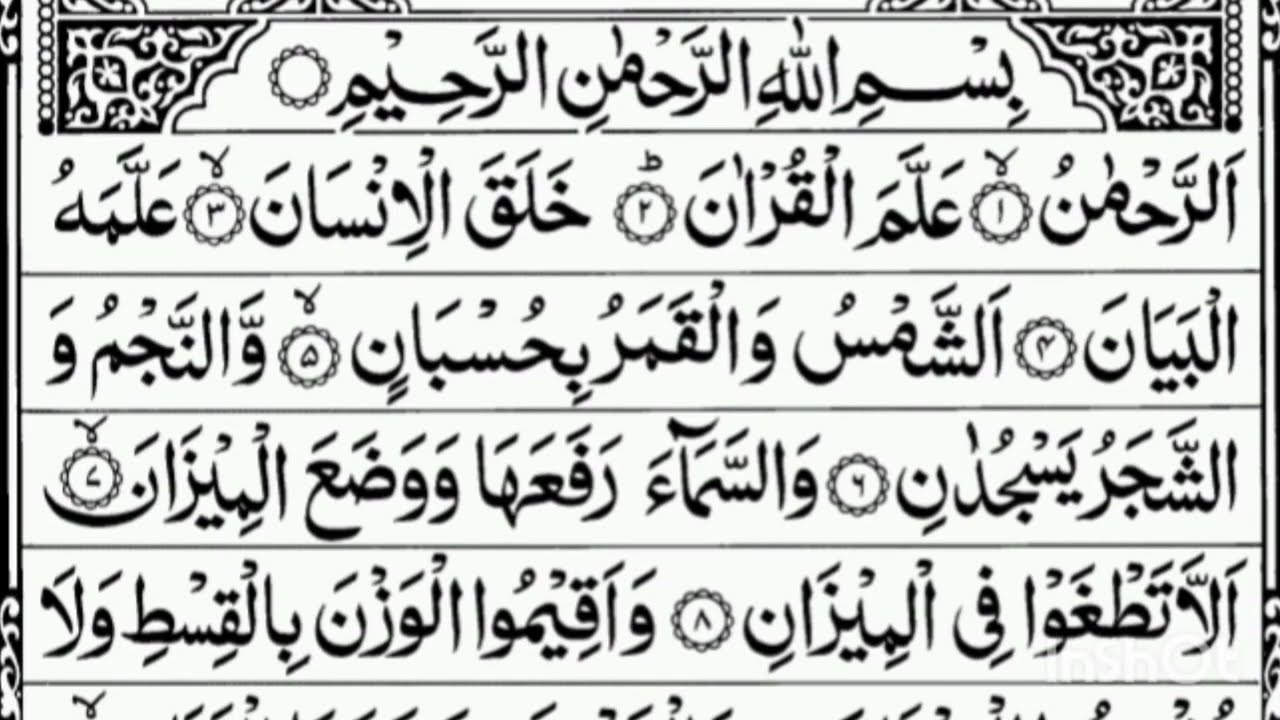 بِسْمِ اللّٰهِ الرَّحْمٰنِ الرَّحِیْمِ
اَلرَّحْمٰنُ ۙ﴿۱﴾ عَلَّمَ الْقُرْاٰنَ ؕ﴿۲﴾ خَلَقَ الْاِنْسَانَ ۙ﴿۳﴾ عَلَّمَهُ
الْبَیَانَ ﴿۴﴾ اَلشَّمْسُ وَالْقَمَرُ بِحُسْبَانٍ ۙ﴿۵﴾ وَّالنَّجْمُ وَ
الشَّجَرُ یَسْجُدٰنِ ﴿۶﴾ وَالسَّمَآءَ رَفَعَهَا وَوَضَعَ الْمِیْزَانَ ۙ﴿۷﴾
اَلَّا تَطْغَوْا فِی الْمِیْزَانِ ﴿۸﴾ وَاَقِیْمُوا الْوَزْنَ بِالْقِسْطِ وَلَا
InShOt